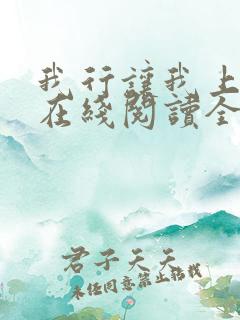 我行讓我上
在綫閱讀全
君子天天
未经同意禁止转载